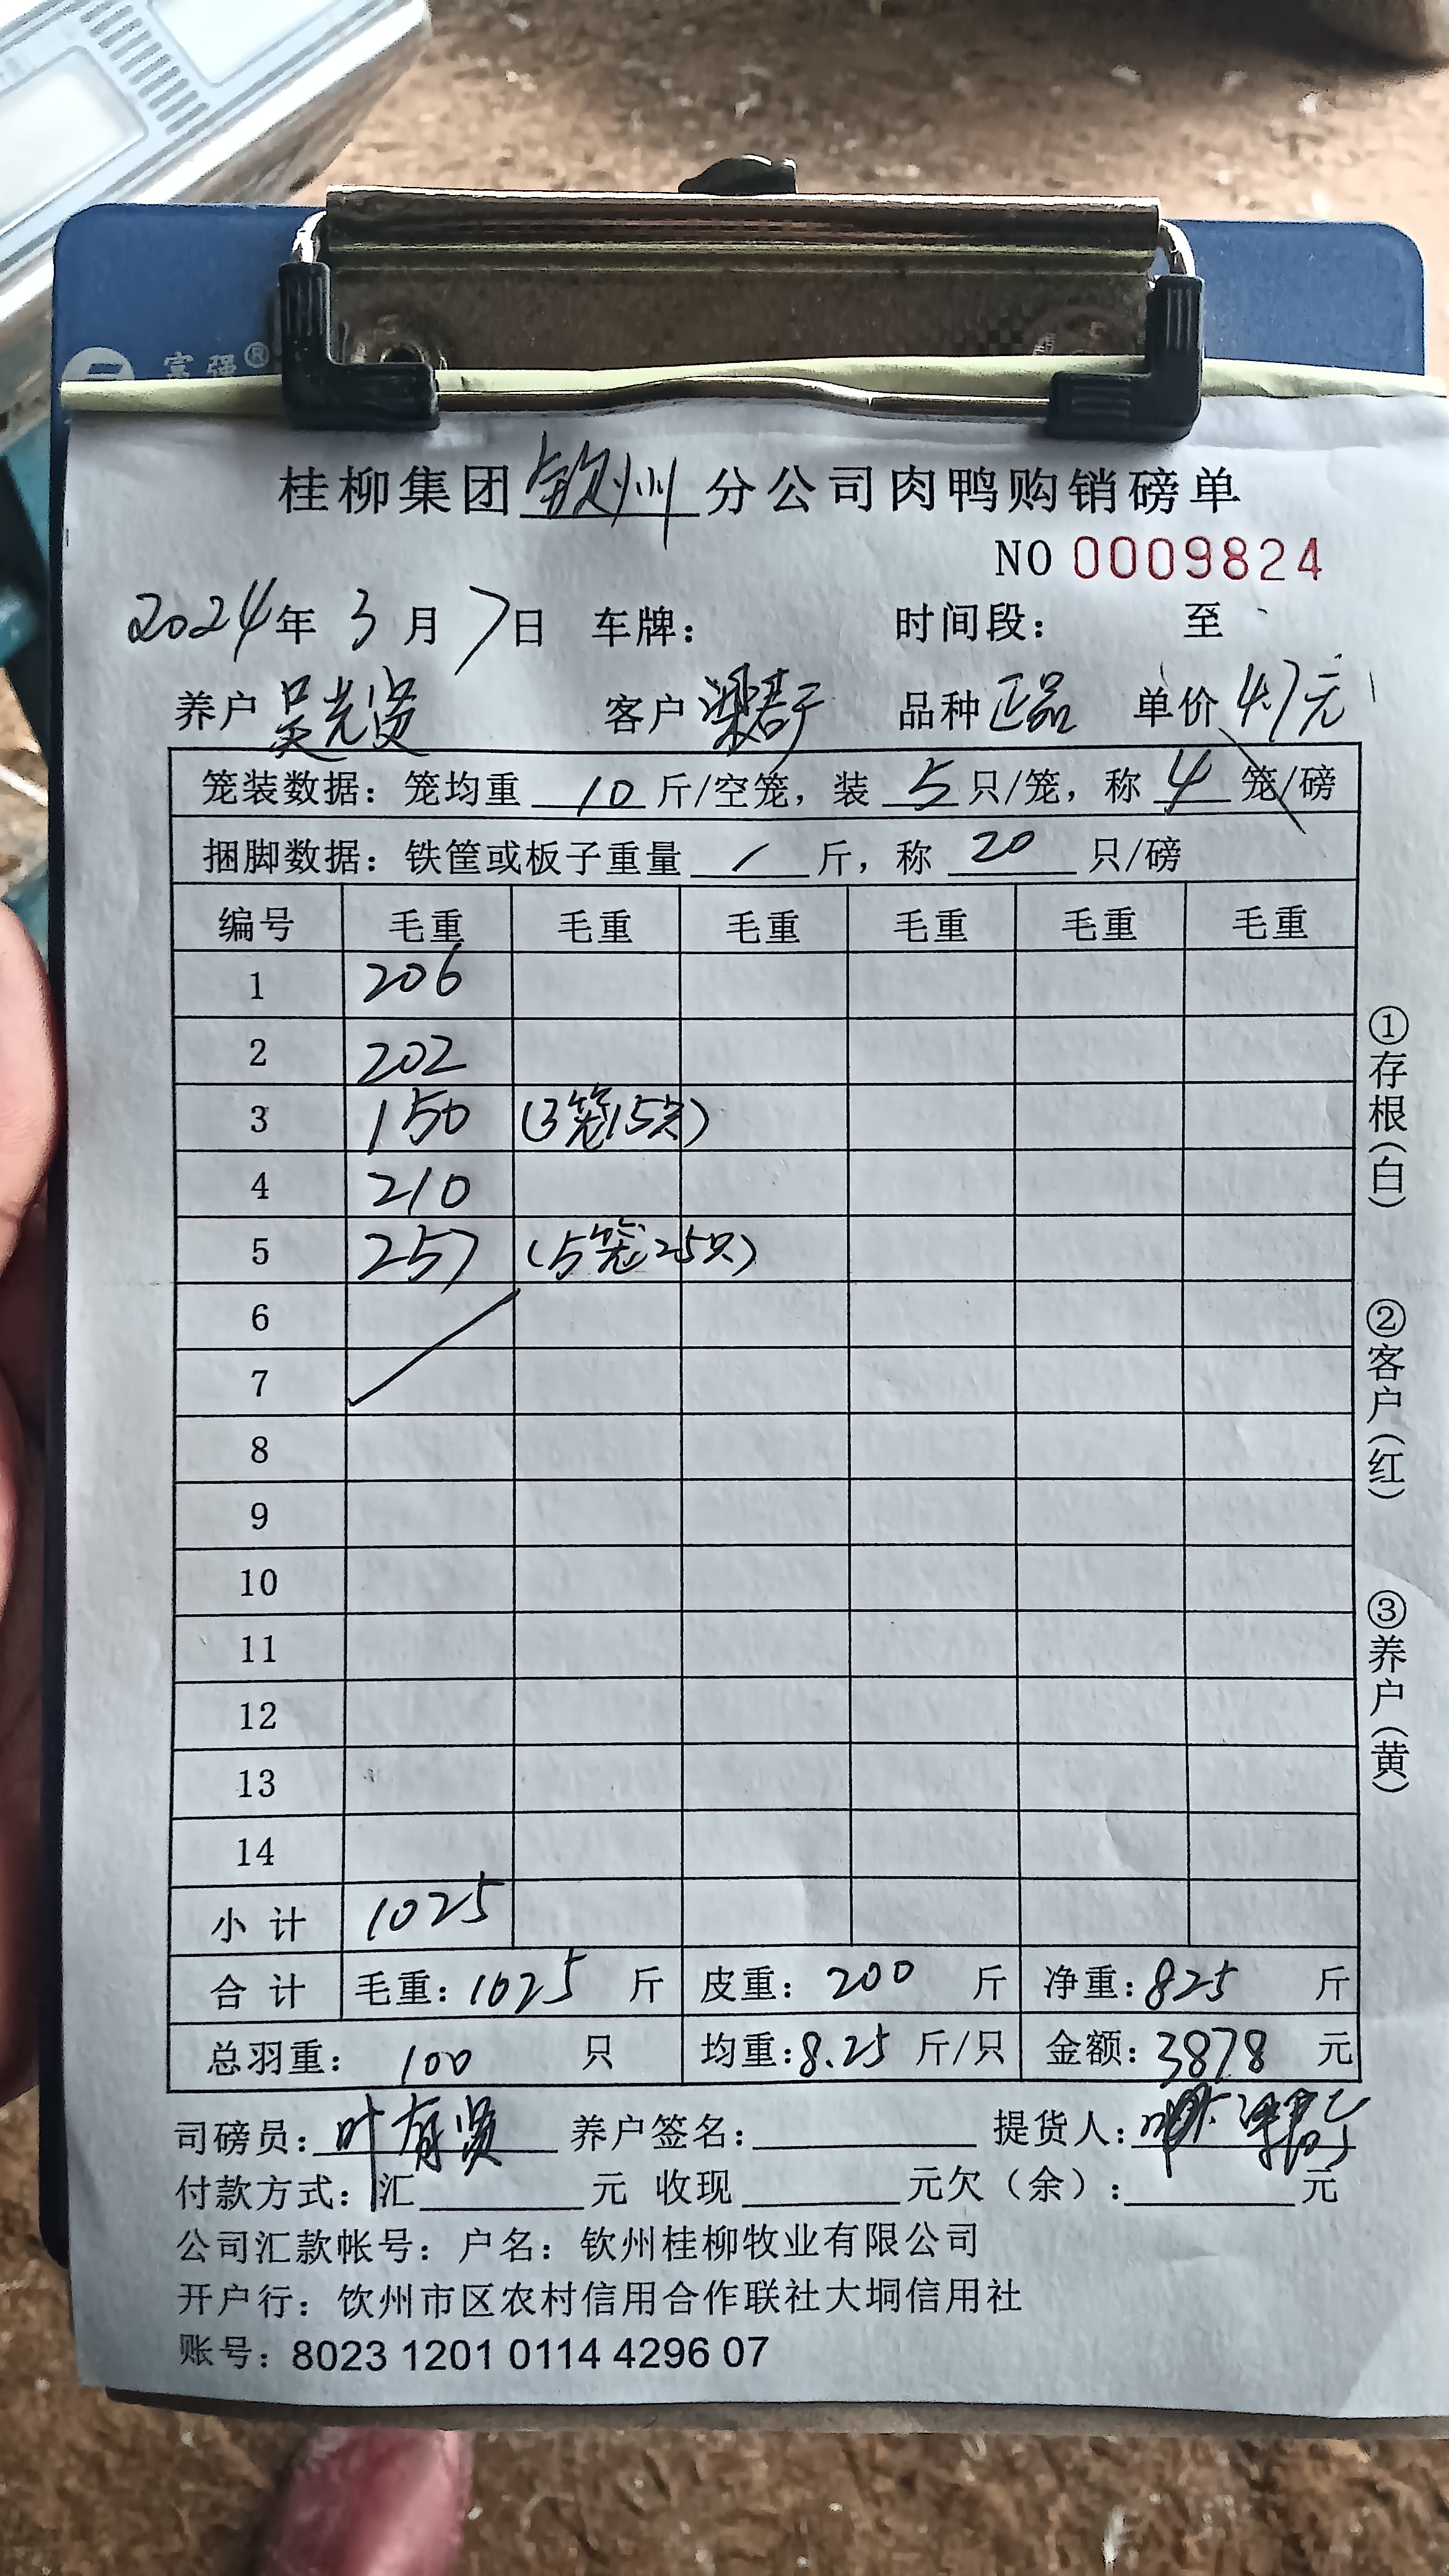 富强®
桂柳集团钦州分公司肉鸭购销磅单
NO 0009824
2024年 3月 7日 车牌： 时间段： 至
养户 吴光贤 客户 梁基于 品种 正品 单价 4.7元
笼装数据：笼均重 10 斤/空笼，装 5 只/笼，称 4 笼/磅
捆脚数据：铁筐或板子重量 / 斤，称 20 只/磅
编号 毛重 毛重 毛重 毛重 毛重 毛重
1 206
2 202
3 150 (3笼15只)
4 210
5 257 (5笼25只)
6
7
8
9
10
11
12
13
14
小计 1025
合计 毛重：1025 斤 皮重：200 斤 净重：825 斤
总羽重： 100 只 均重：8.25 斤/只 金额：3878 元
司磅员：叶有贤 养户签名： 提货人：
付款方式：汇 元 收现 元欠（余）： 元
公司汇款帐号：户名：钦州桂柳牧业有限公司
开户行：饮州市区农村信用合作联社大垌信用社
账号：8023 1201 0114 4296 07
①存根（白）
②客户（红）
③养户（黄）